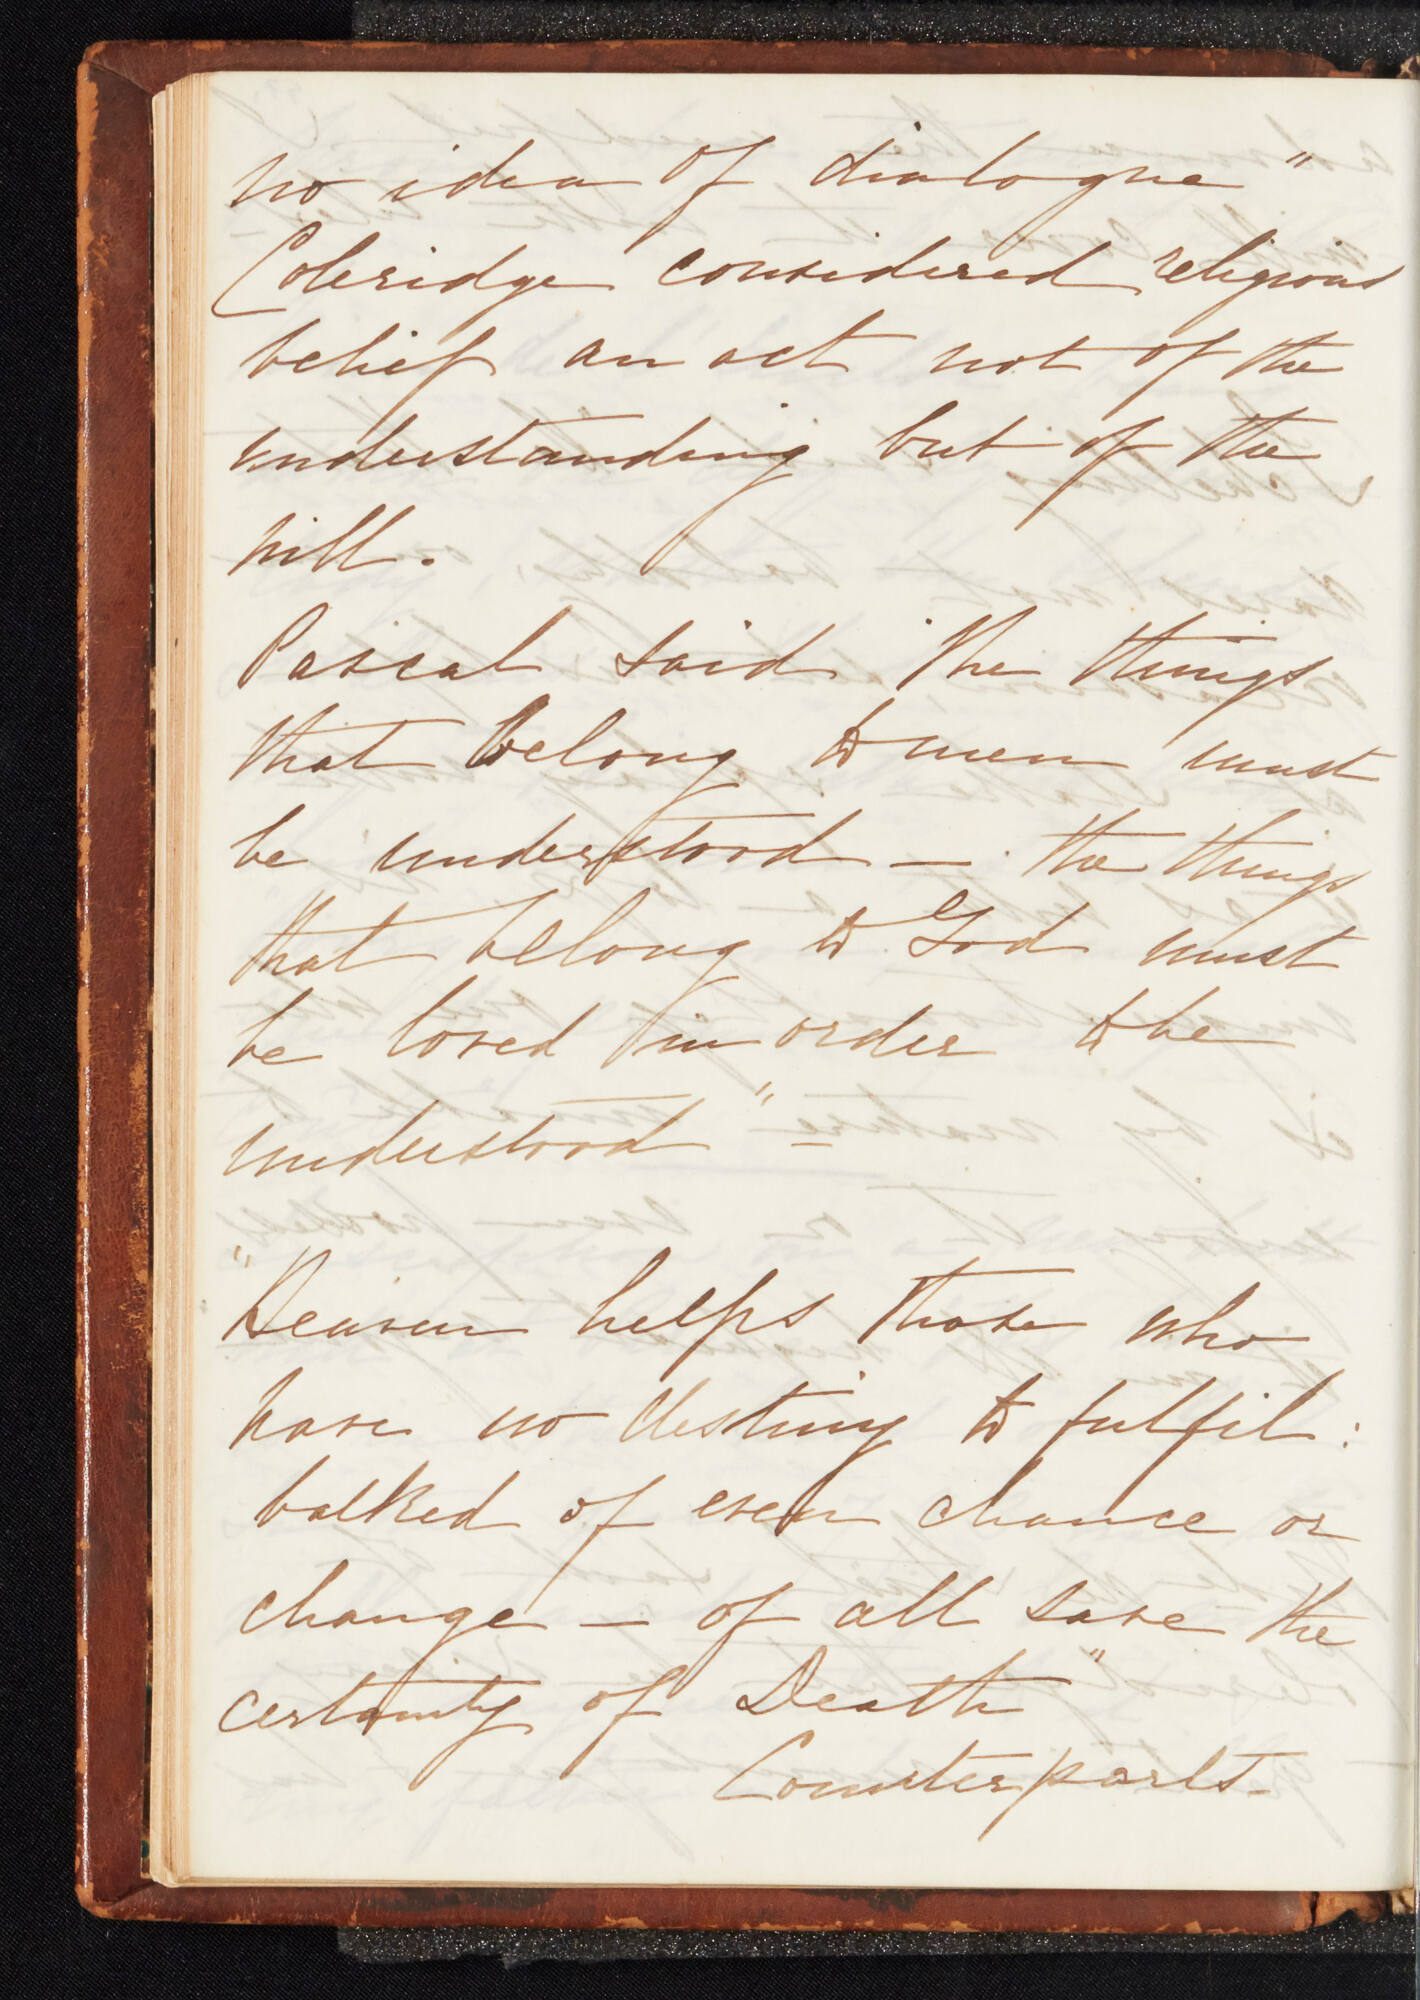 no idea of dialogue"
Coleridge considered religious
belief an act not of the
understanding but of the
will.
Pascal said "the things
that belong to men must
be understood – the things
that belong to God must
be loved in order to be
understood" –
"Heaven helps those who
have no destiny to fulfil:
balked of even chance or
change – of all save the
certainty of Death"
Counterparts –